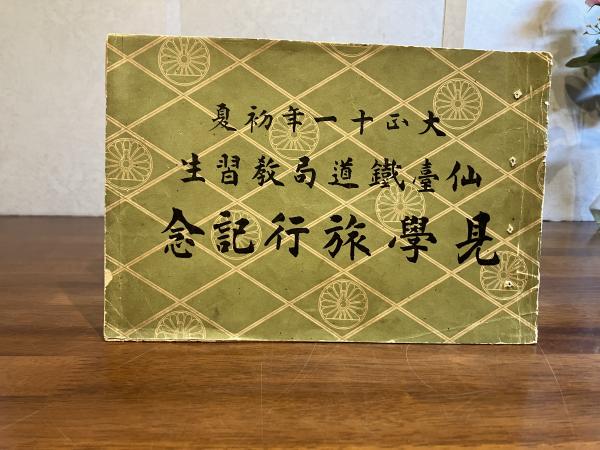 大正十一年初夏
仙臺鐵道局教習生
見學旅行記念